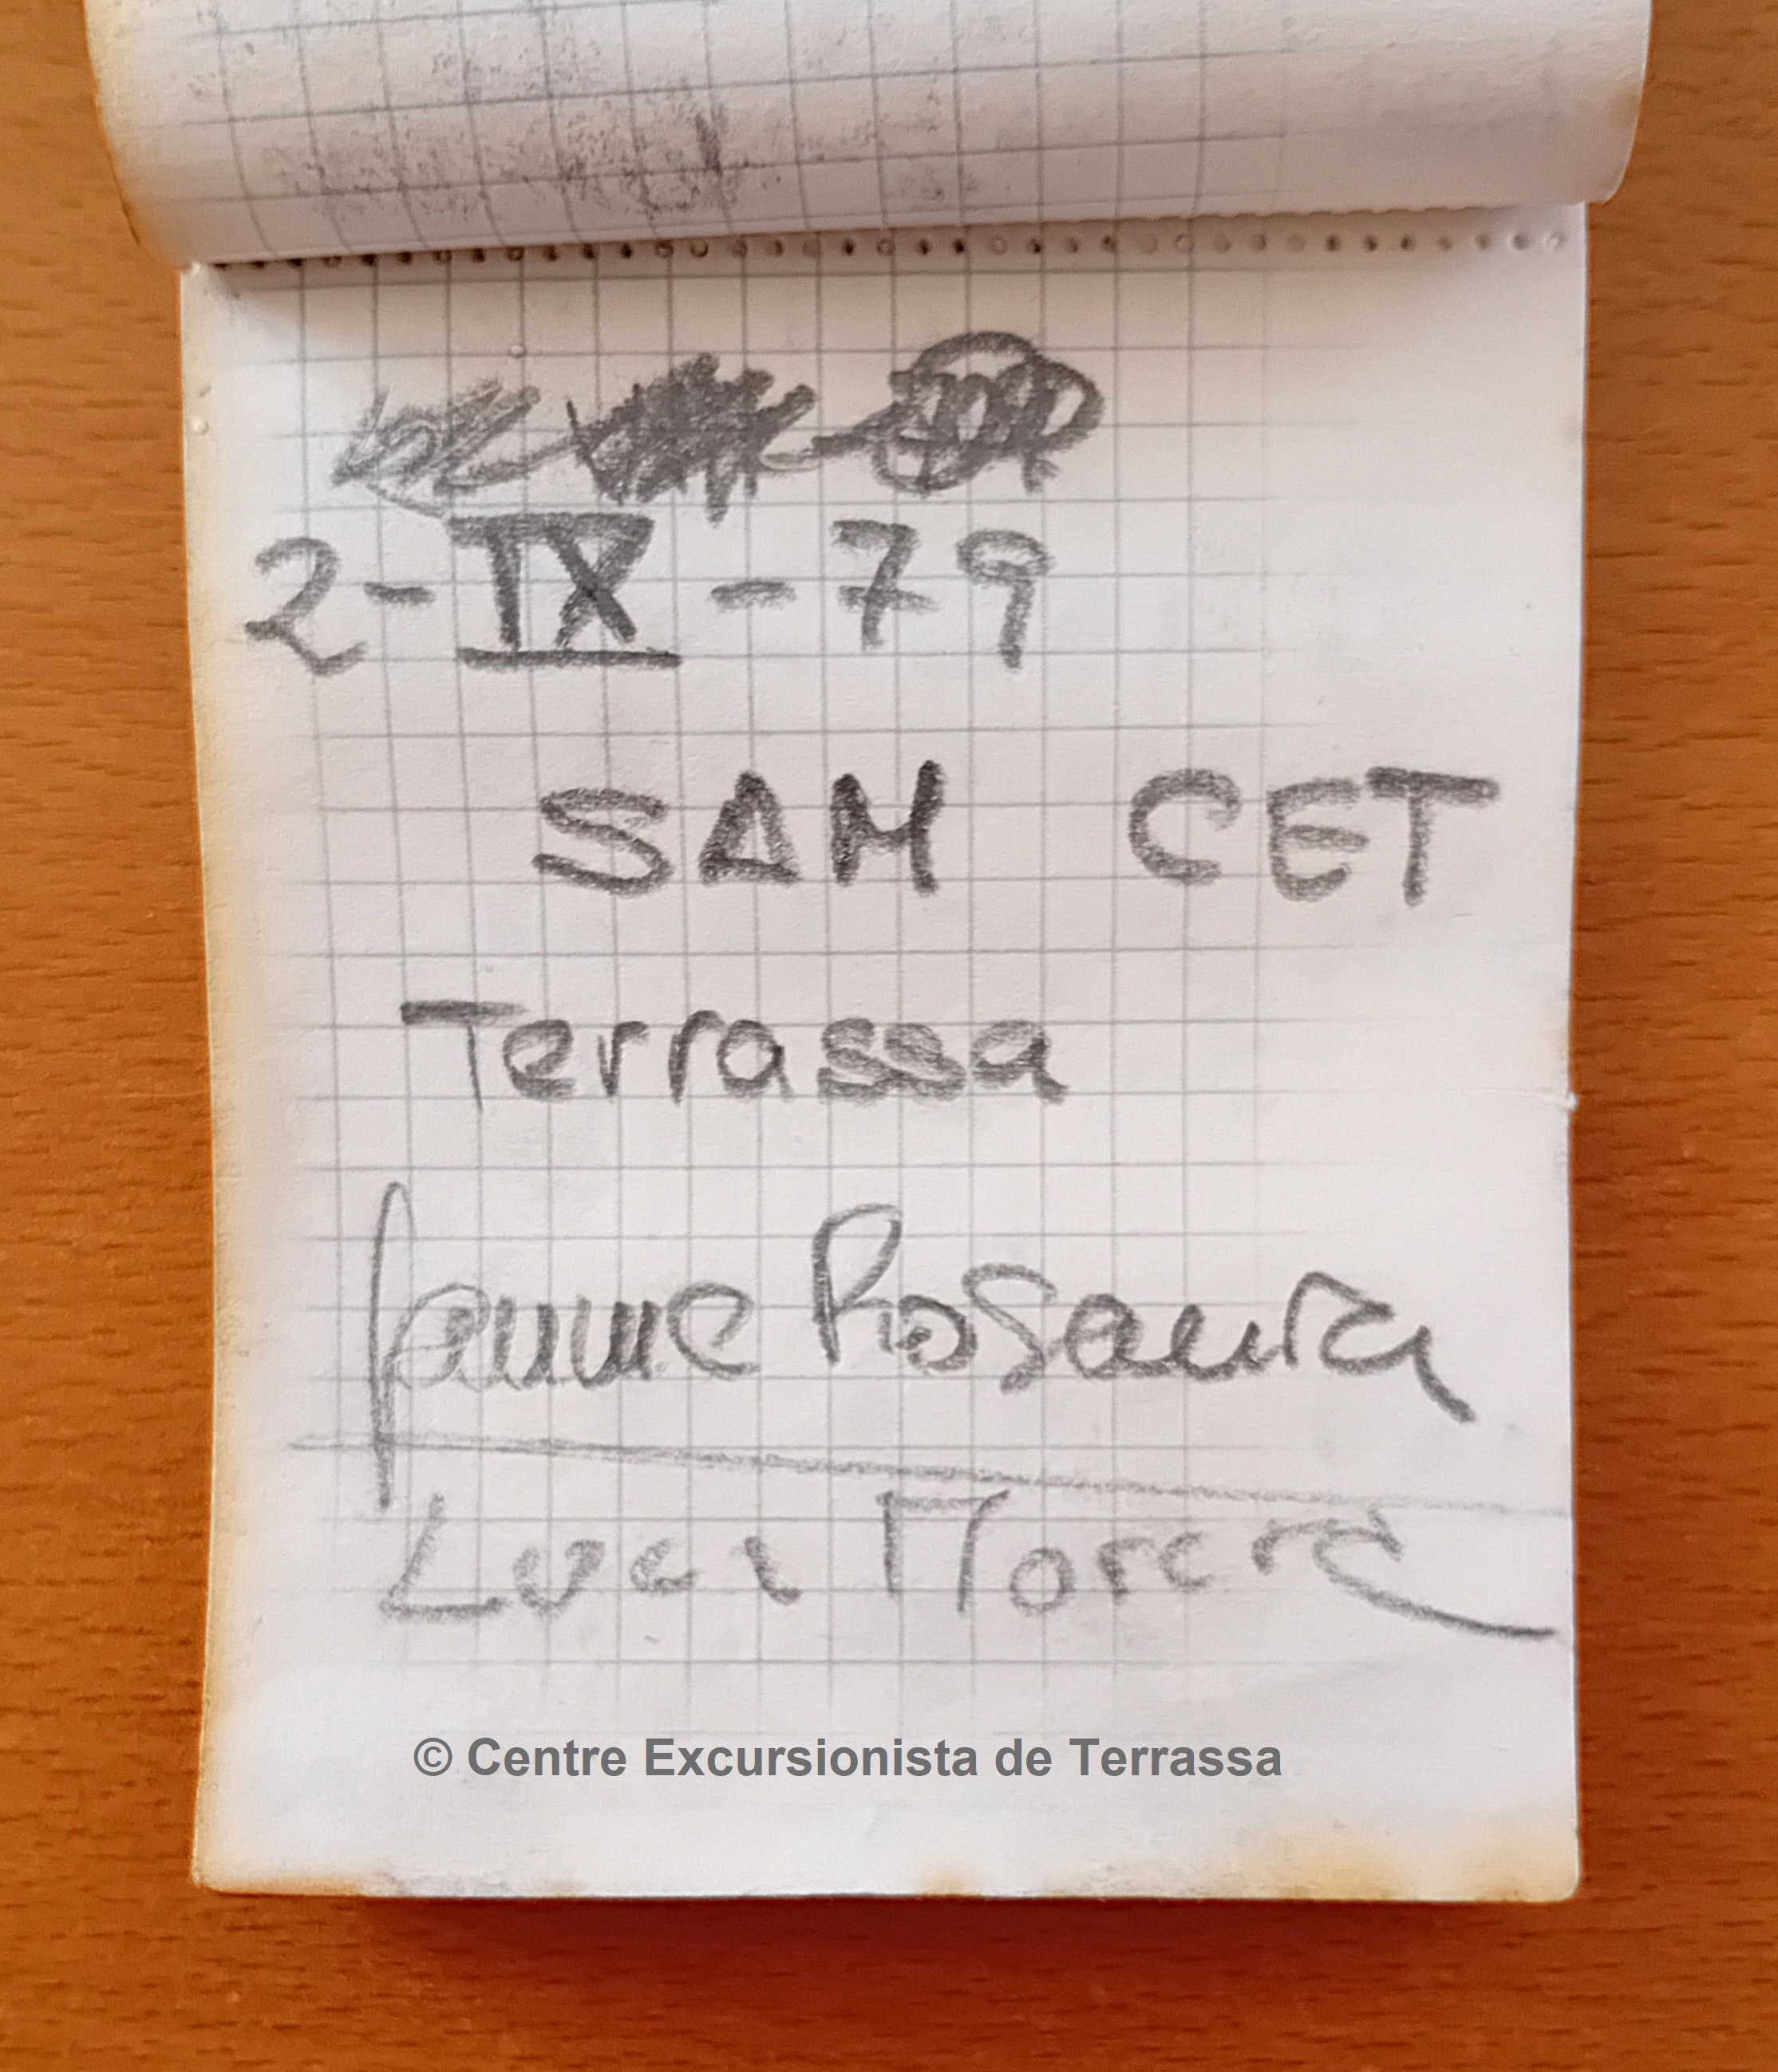 2-IX-79
SAM CET
Terrassa
Jaume Rosaura
Morere
© Centre Excursionista de Terrassa